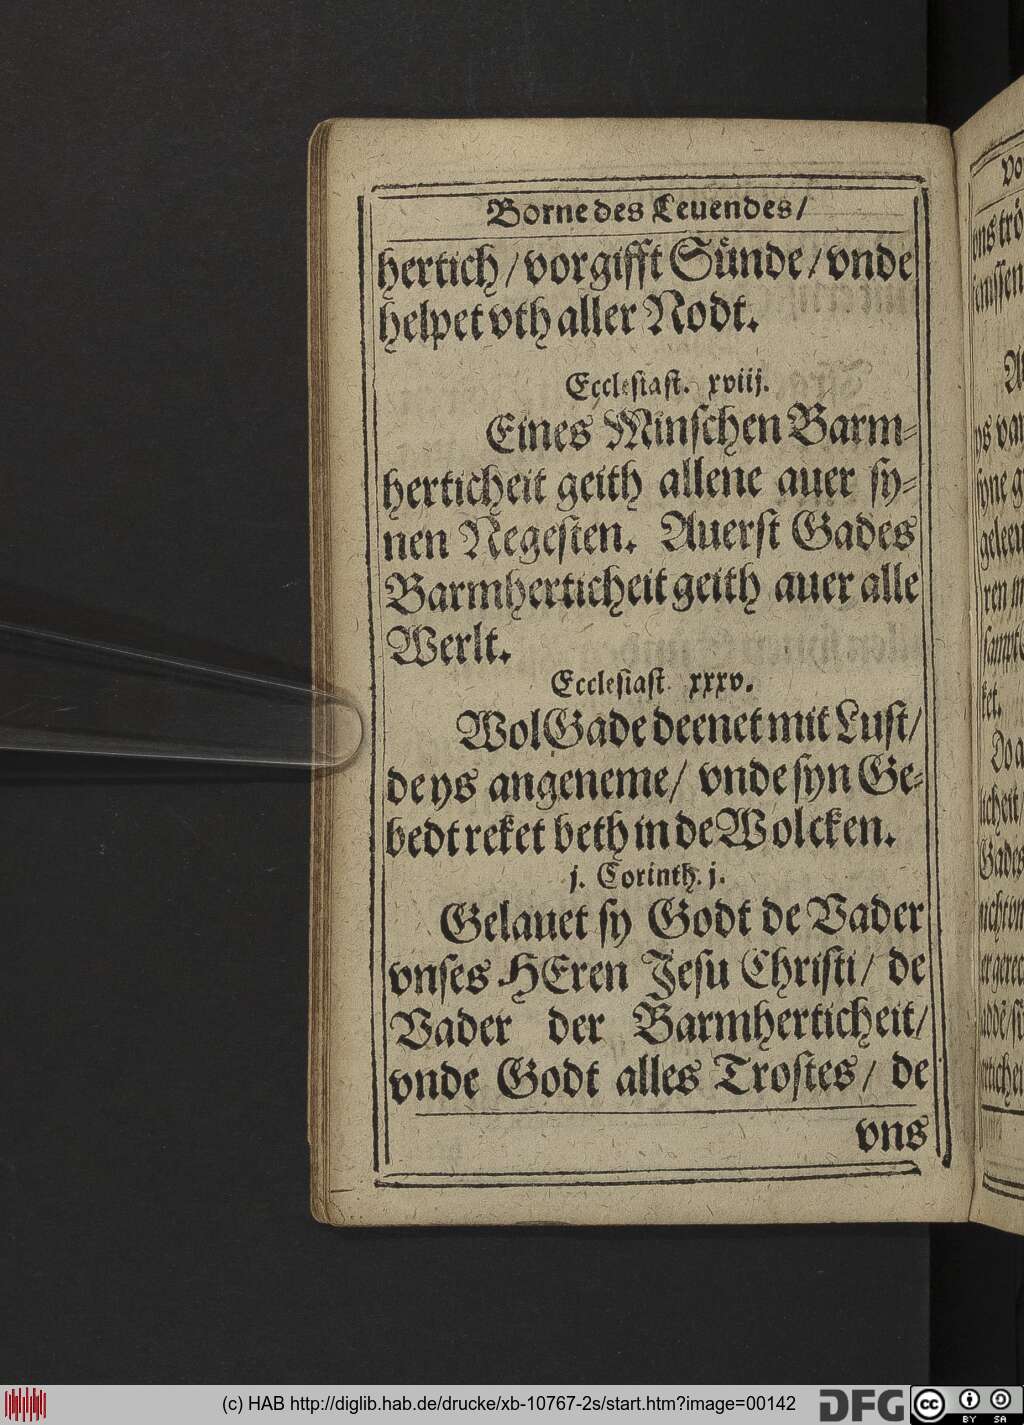 Borne des Leuendes/
hertich/ vorgifft Sünde/ vnde
helpet vth aller Nodt.
Ecclesiast. xviij.
Eines Minschen Barm-
herticheit geith allene auer sy-
nen Negesten. Auerst Gades
Barmherticheit geith auer alle
Werlt.
Ecclesiast xxxv.
Wol Gade deenet mit Lust/
de ys angeneme/ vnde syn Ge-
bedt reket beth in de Wolcken.
j. Corinth. j.
Gelauet sy Godt de Vader
vnses HEren Jesu Christi/ de
Vader der Barmherticheit/
vnde Godt alles Trostes/ de
vns
(c) HAB http://diglib.hab.de/drucke/xb-10767-2s/start.htm?image=00142
DFG
cc
BY SA